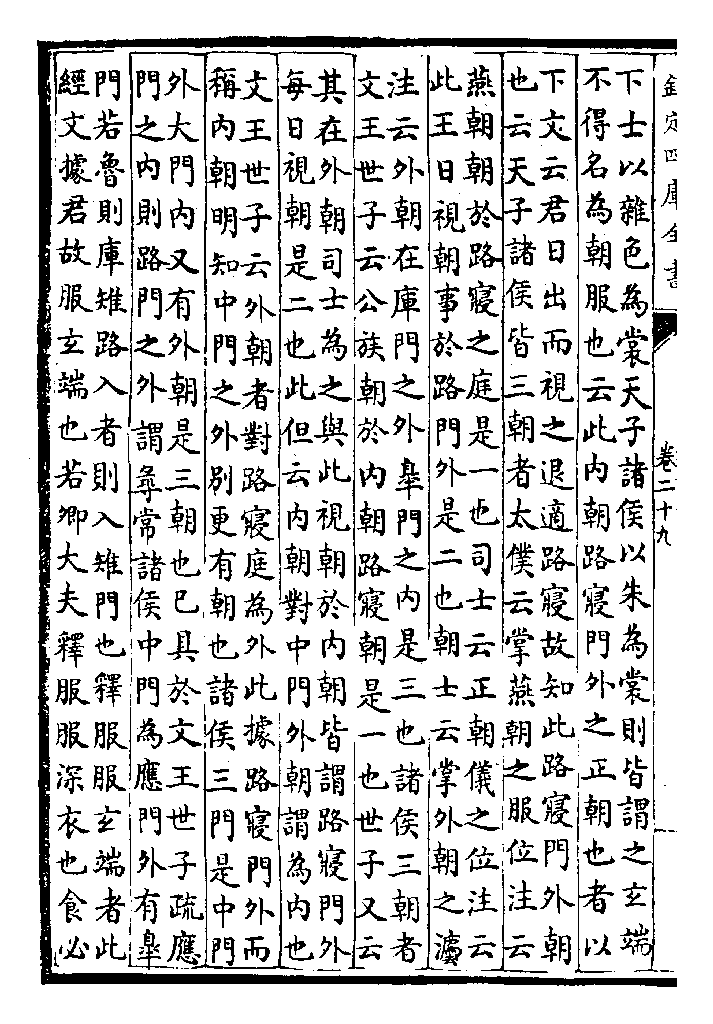 欽定四庫全書
卷二十九
下士以雜色為裳天子諸侯以朱為裳則皆謂之玄端
不得名為朝服也云此内朝路寢門外之正朝也者以
下文云君日出而視之退適路寢故知此路寢門外朝
也云天子諸侯皆三朝者太僕云掌燕朝之服位注云
燕朝朝於路寢之庭是一也司士云正朝儀之位注云
此王日視朝事於路門外是二也朝士云掌外朝之灋
注云外朝在庫門之外皐門之内是三也諸侯三朝者
文王世子云公族朝於内朝路寢朝是一也世子又云
其在外朝司士為之與此視朝於内朝皆謂路寢門外
每日視朝是二也此但云内朝對中門外朝謂為内也
文王世子云外朝者對路寢庭為外此據路寢門外而
稱内朝明知中門之外别更有朝也諸侯三門是中門
外大門内又有外朝是三朝也已具於文王世子疏應
門之内則路門之外謂尋常諸侯中門為應門外有皐
門若魯則庫雉路入者則入雉門也釋服服玄端者此
經文據君故服玄端也若卿大夫釋服服深衣也食必